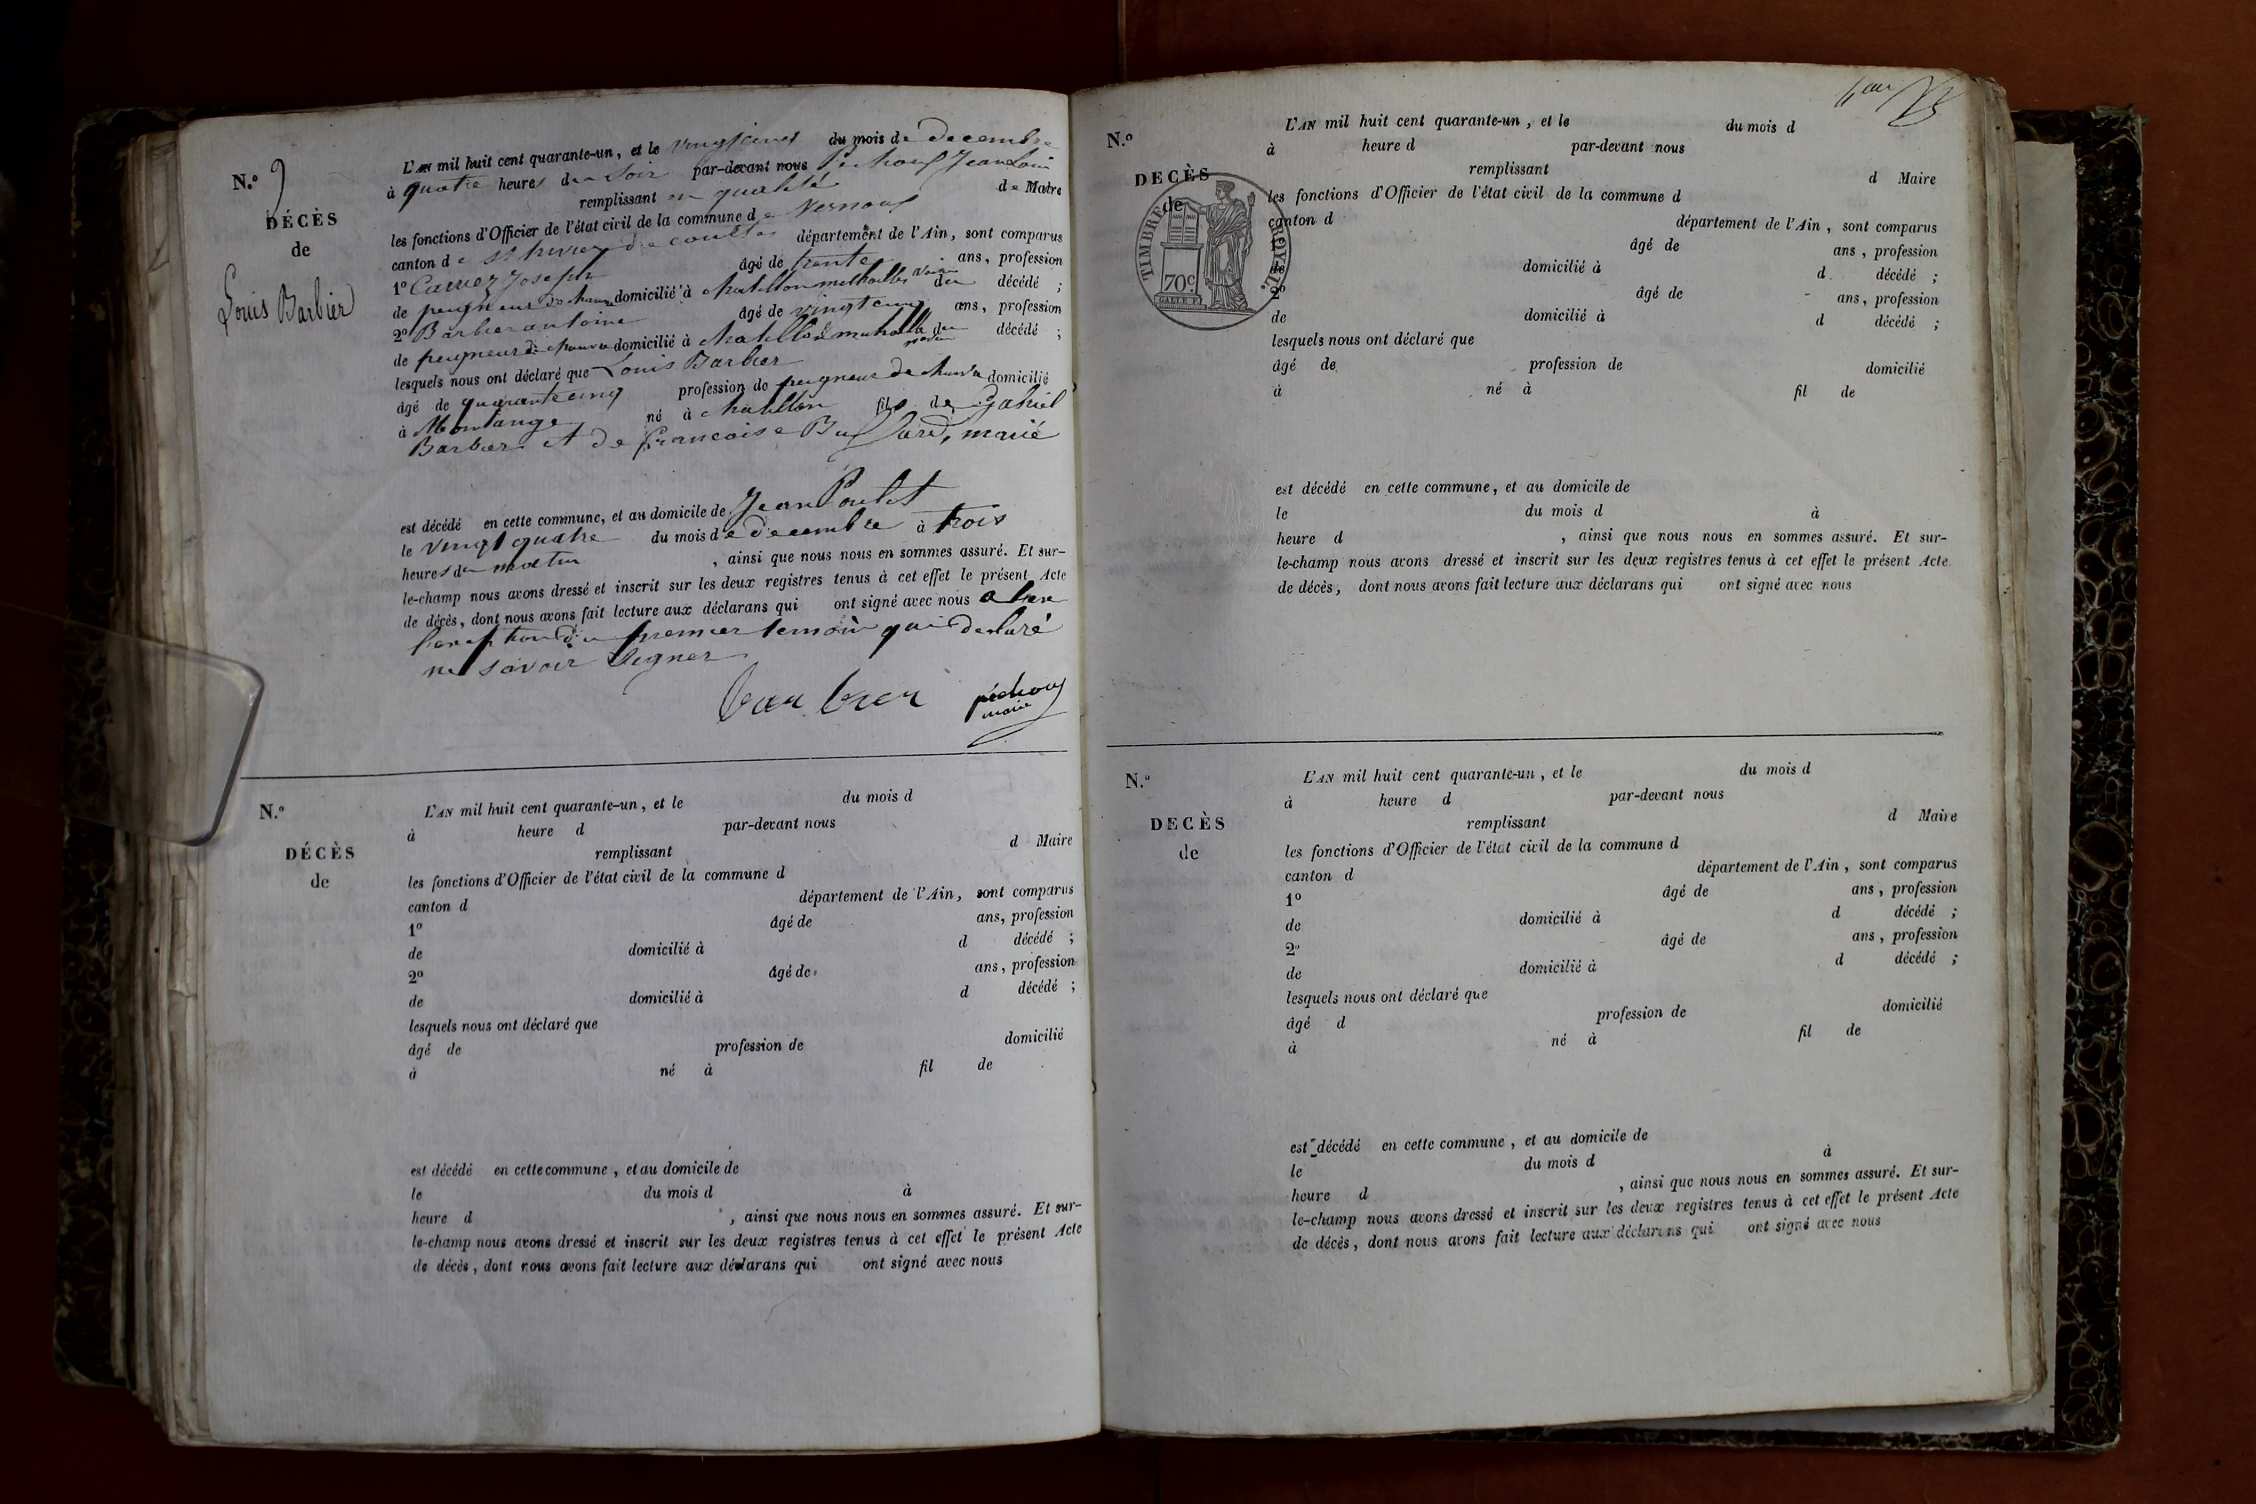 N.o 9
DÉCÈS
de
Louis Barbier
L'AN mil huit cent quarante-un, et le vingt cinq du mois de decembre
à quatre heures du soir par-devant nous Pechoux Jean Louis
remplissant en qualité de Maire
les fonctions d'Officier de l'état civil de la commune de Vernoux
canton de st trivier de courtes département de l'Ain, sont comparus
1o Carrier Joseph âgé de trente ans, profession
de peigneur de chanvre domicilié à chatillon michailles voisin du décédé ;
2o Barbier antoine âgé de vingt cinq ans, profession
de peigneur de chanvre domicilié à chatillon du décédé ;
lesquels nous ont déclaré que Louis Barbier
âgé de quarante cinq profession de peigneur de chanvre domicilié
à Montange né à chatillon fils de Gabriel
Barbier et de francoise marié
est décédé en cette commune, et au domicile de Jean Poulet
le vingt quatre du mois de decembre à trois
heures du matin , ainsi que nous nous en sommes assuré. Et sur-
le-champ nous avons dressé et inscrit sur les deux registres tenus à cet effet le présent Acte
de décès, dont nous avons fait lecture aux déclarans qui ont signé avec nous
du premier temoin qui declaré
ne savoir signer
barbier pechoux
maire
N.o
DÉCÈS
de
L'AN mil huit cent quarante-un, et le du mois d
à heure d par-devant nous
remplissant d Maire
les fonctions d'Officier de l'état civil de la commune d
canton d département de l'Ain, sont comparus
1o âgé de ans, profession
de domicilié à d décédé ;
2o âgé de ans, profession
de domicilié à d décédé ;
lesquels nous ont déclaré que
âgé de profession de domicilié
à né à fil de
est décédé en cette commune, et au domicile de
le du mois d à
heure d , ainsi que nous nous en sommes assuré. Et sur-
le-champ nous avons dressé et inscrit sur les deux registres tenus à cet effet le présent Acte
de décès, dont nous avons fait lecture aux déclarans qui ont signé avec nous
N.o
DECÈS
de
TIMBRE ROYAL.
70c.
L'AN mil huit cent quarante-un, et le du mois d
à heure d par-devant nous
remplissant d Maire
les fonctions d'Officier de l'état civil de la commune d
canton d département de l'Ain, sont comparus
âgé de ans, profession
de domicilié à d décédé ;
2o âgé de ans, profession
de domicilié à d décédé ;
lesquels nous ont déclaré que
âgé de profession de domicilié
à né à fil de
est décédé en cette commune, et au domicile de
le du mois d à
heure d , ainsi que nous nous en sommes assuré. Et sur-
le-champ nous avons dressé et inscrit sur les deux registres tenus à cet effet le présent Acte
de décès, dont nous avons fait lecture aux déclarans qui ont signé avec nous
N.o
DECÈS
de
L'AN mil huit cent quarante-un, et le du mois d
à heure d par-devant nous
remplissant d Maire
les fonctions d'Officier de l'état civil de la commune d
canton d département de l'Ain, sont comparus
1o âgé de ans, profession
de domicilié à d décédé ;
2o âgé de ans, profession
de domicilié à d décédé ;
lesquels nous ont déclaré que
âgé d profession de domicilié
à né à fil de
est décédé en cette commune, et au domicile de
le du mois d à
heure d , ainsi que nous nous en sommes assuré. Et sur-
le-champ nous avons dressé et inscrit sur les deux registres tenus à cet effet le présent Acte
de décès, dont nous avons fait lecture aux déclarans qui ont signé avec nous